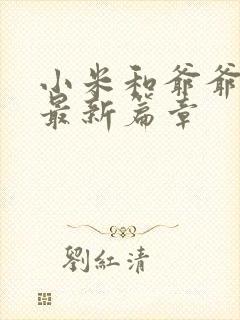 小米和爺爺
最新篇章
劉紅清